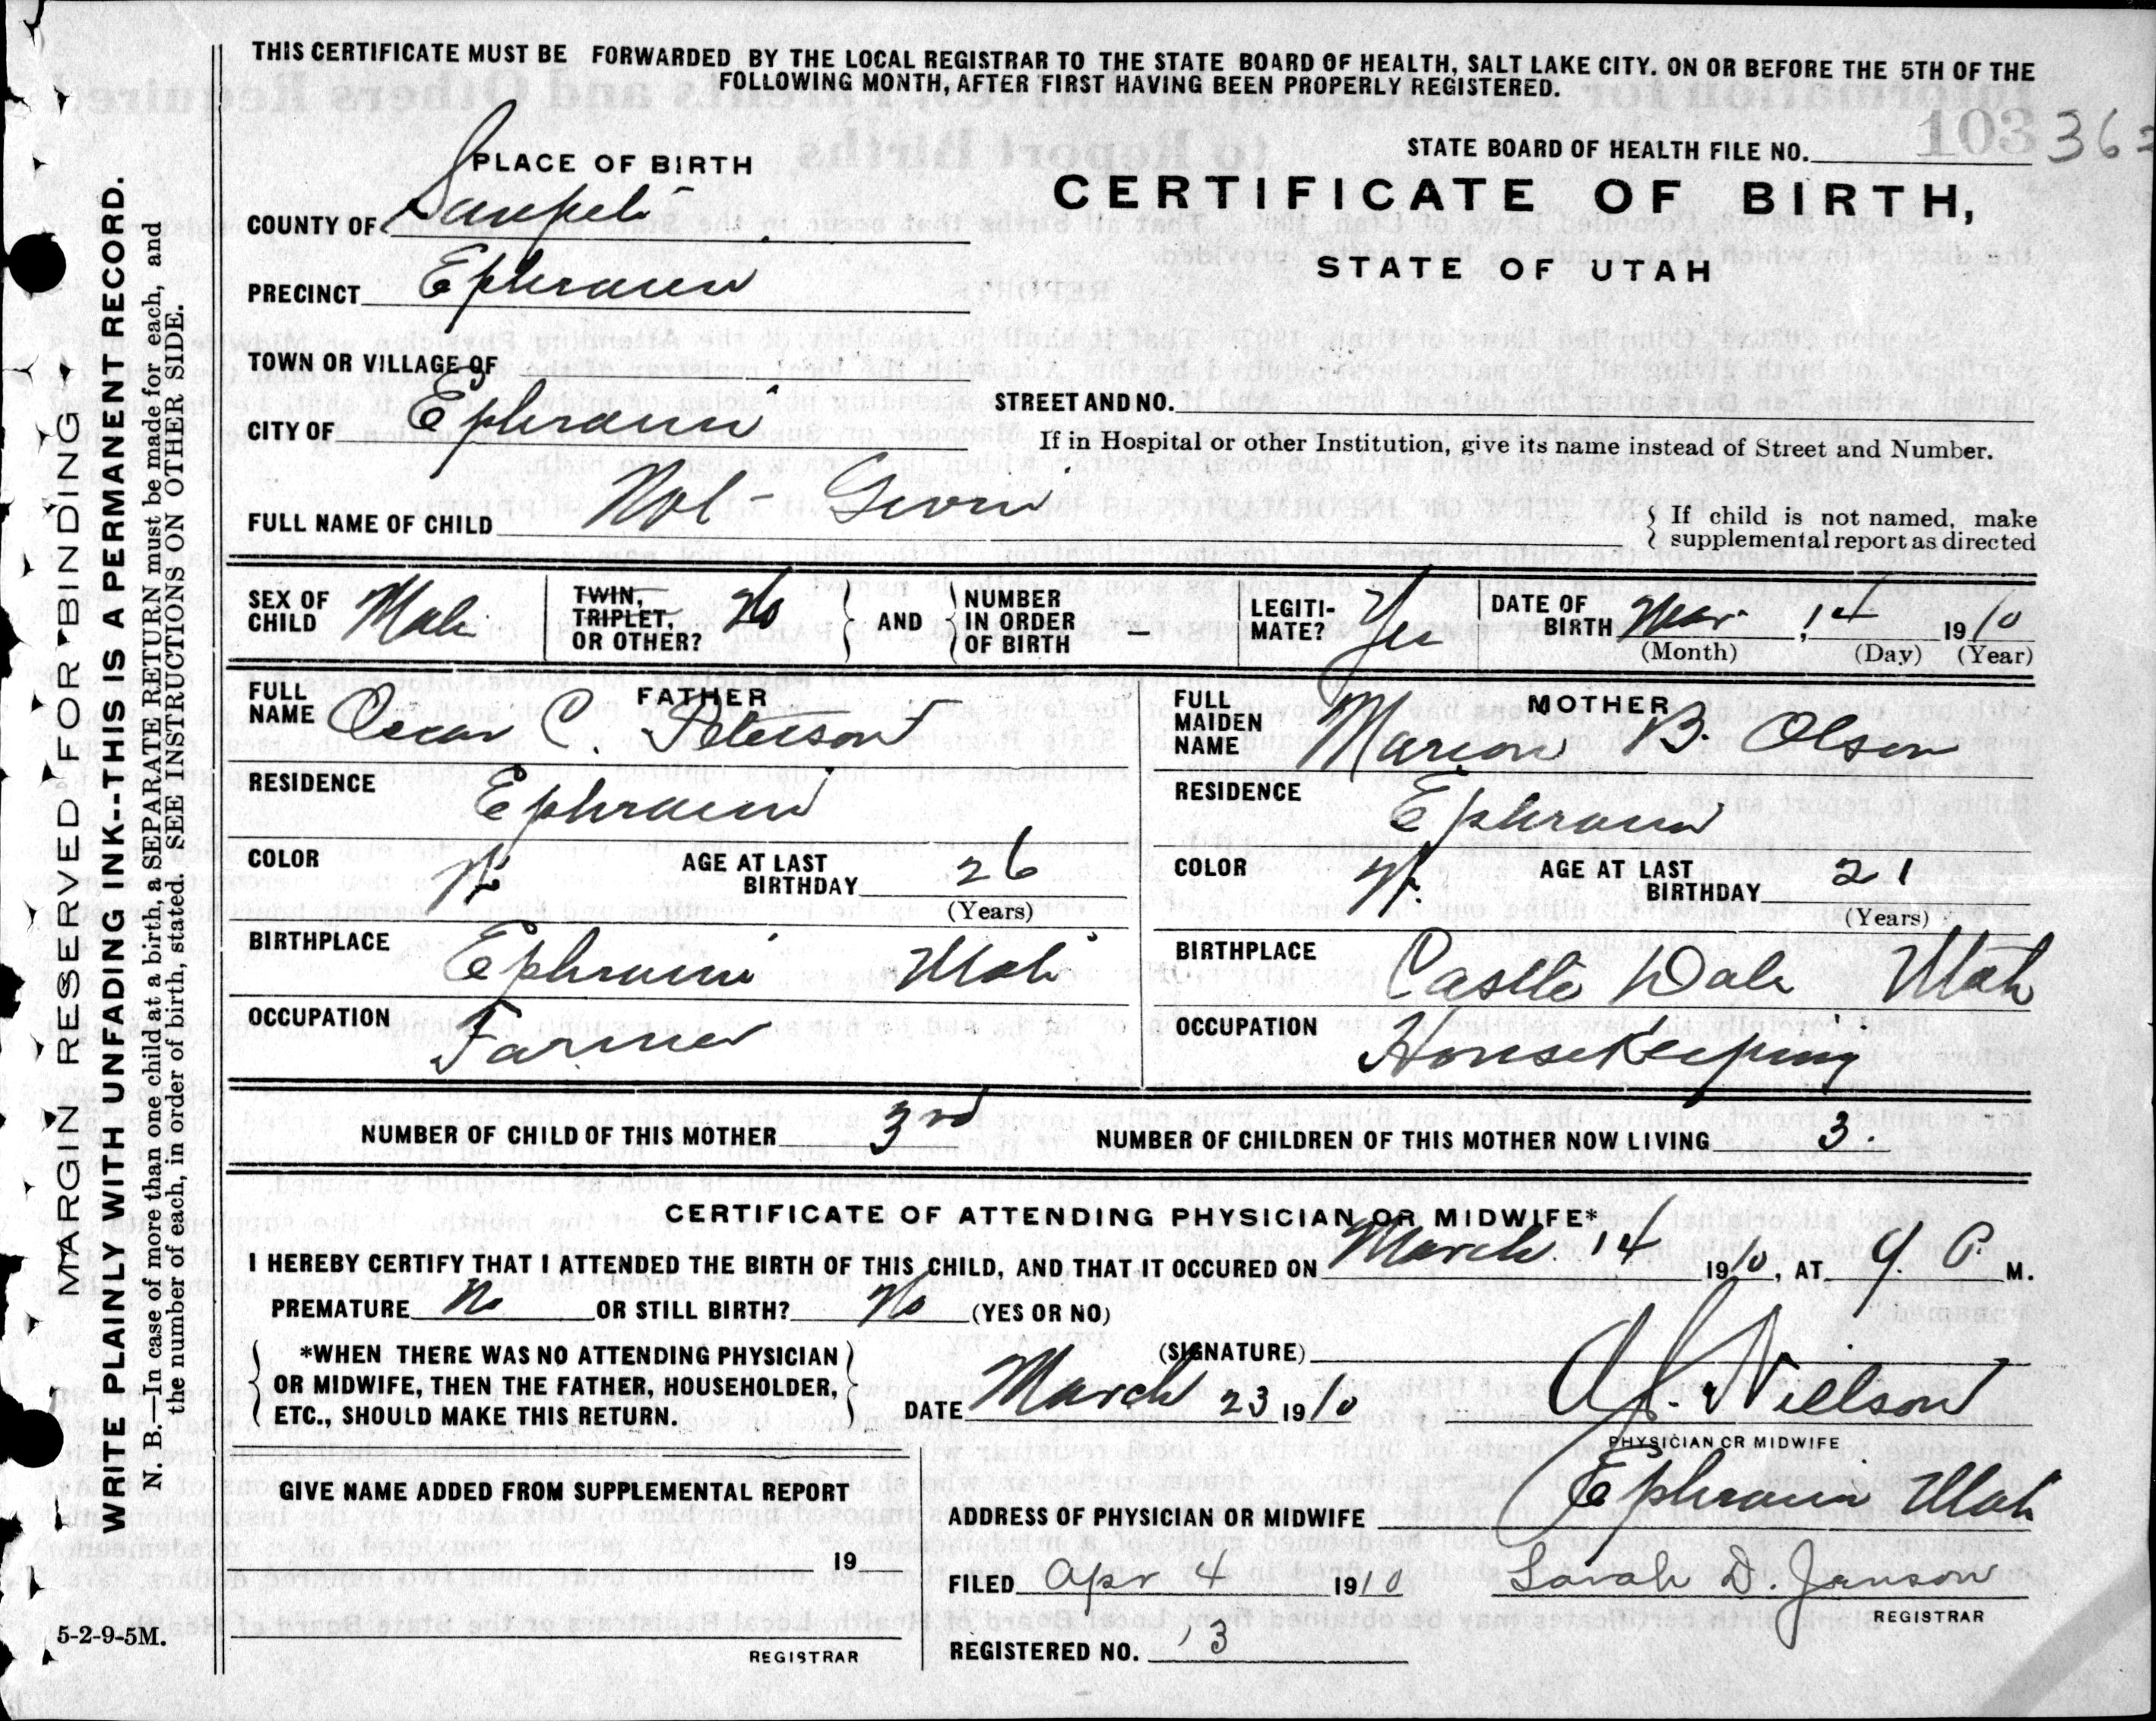 THIS CERTIFICATE MUST BE FORWARDED BY THE LOCAL REGISTRAR TO THE STATE BOARD OF HEALTH, SALT LAKE CITY. ON OR BEFORE THE 5TH OF THE
FOLLOWING MONTH, AFTER FIRST HAVING BEEN PROPERLY REGISTERED.
STATE BOARD OF HEALTH FILE NO. 103 36
CERTIFICATE OF BIRTH,
STATE OF UTAH
PLACE OF BIRTH
COUNTY OF Sanpete
PRECINCT Ephraim
TOWN OR VILLAGE OF
CITY OF Ephraim
STREET AND NO.
If in Hospital or other Institution, give its name instead of Street and Number.
FULL NAME OF CHILD Not Given
If child is not named, make
supplemental report as directed
SEX OF CHILD Male
TWIN, TRIPLET, OR OTHER? No
AND NUMBER IN ORDER OF BIRTH —
LEGITI- MATE? Yes
DATE OF BIRTH Mar 14 1910
(Month) (Day) (Year)
FATHER
FULL NAME Oscar C. Peterson
RESIDENCE Ephraim
COLOR W. AGE AT LAST BIRTHDAY 26
(Years)
BIRTHPLACE Ephraim Utah
OCCUPATION Farmer
MOTHER
FULL MAIDEN NAME Marion B. Olson
RESIDENCE Ephraim
COLOR W. AGE AT LAST BIRTHDAY 21
(Years)
BIRTHPLACE Castle Dale Utah
OCCUPATION Housekeeping
NUMBER OF CHILD OF THIS MOTHER 3rd NUMBER OF CHILDREN OF THIS MOTHER NOW LIVING 3.
CERTIFICATE OF ATTENDING PHYSICIAN OR MIDWIFE*
I HEREBY CERTIFY THAT I ATTENDED THE BIRTH OF THIS CHILD, AND THAT IT OCCURED ON March 14 1910, AT P. M.
PREMATURE No OR STILL BIRTH? No (YES OR NO)
*WHEN THERE WAS NO ATTENDING PHYSICIAN
OR MIDWIFE, THEN THE FATHER, HOUSEHOLDER,
ETC., SHOULD MAKE THIS RETURN.
(SIGNATURE) Nielson
DATE March 23 1910
PHYSICIAN OR MIDWIFE
GIVE NAME ADDED FROM SUPPLEMENTAL REPORT
19
REGISTRAR
ADDRESS OF PHYSICIAN OR MIDWIFE Ephraim Utah
FILED Apr 4 1910 Sarah D. Jenson
REGISTRAR
REGISTERED NO. 13
5-2-9-5M.
MARGIN RESERVED FOR BINDING
WRITE PLAINLY WITH UNFADING INK--THIS IS A PERMANENT RECORD.
N. B.—In case of more than one child at a birth, a SEPARATE RETURN must be made for each, and
the number of each, in order of birth, stated. SEE INSTRUCTIONS ON OTHER SIDE.